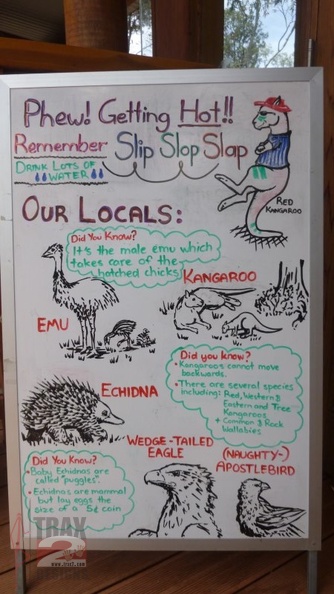 Phew! Getting Hot!!
Remember Slip Slop Slap
DRINK LOTS OF
WATER
RED
KANGAROO
OUR LOCALS:
Did You Know?
It's the male emu which
takes care of the
hatched chicks
KANGAROO
EMU
Did you know?
• Kangaroos cannot move
backwards.
• There are several species
including: Red, Western &
Eastern and Tree
Kangaroos
+ Common & Rock
Wallabies
ECHIDNA
WEDGE-TAILED
EAGLE
(NAUGHTY-)
APOSTLEBIRD
Did You Know?
• Baby Echidnas are
called "puggles".
• Echidnas are mammal
but lay eggs the
size of a 5¢ coin
TRAX
2